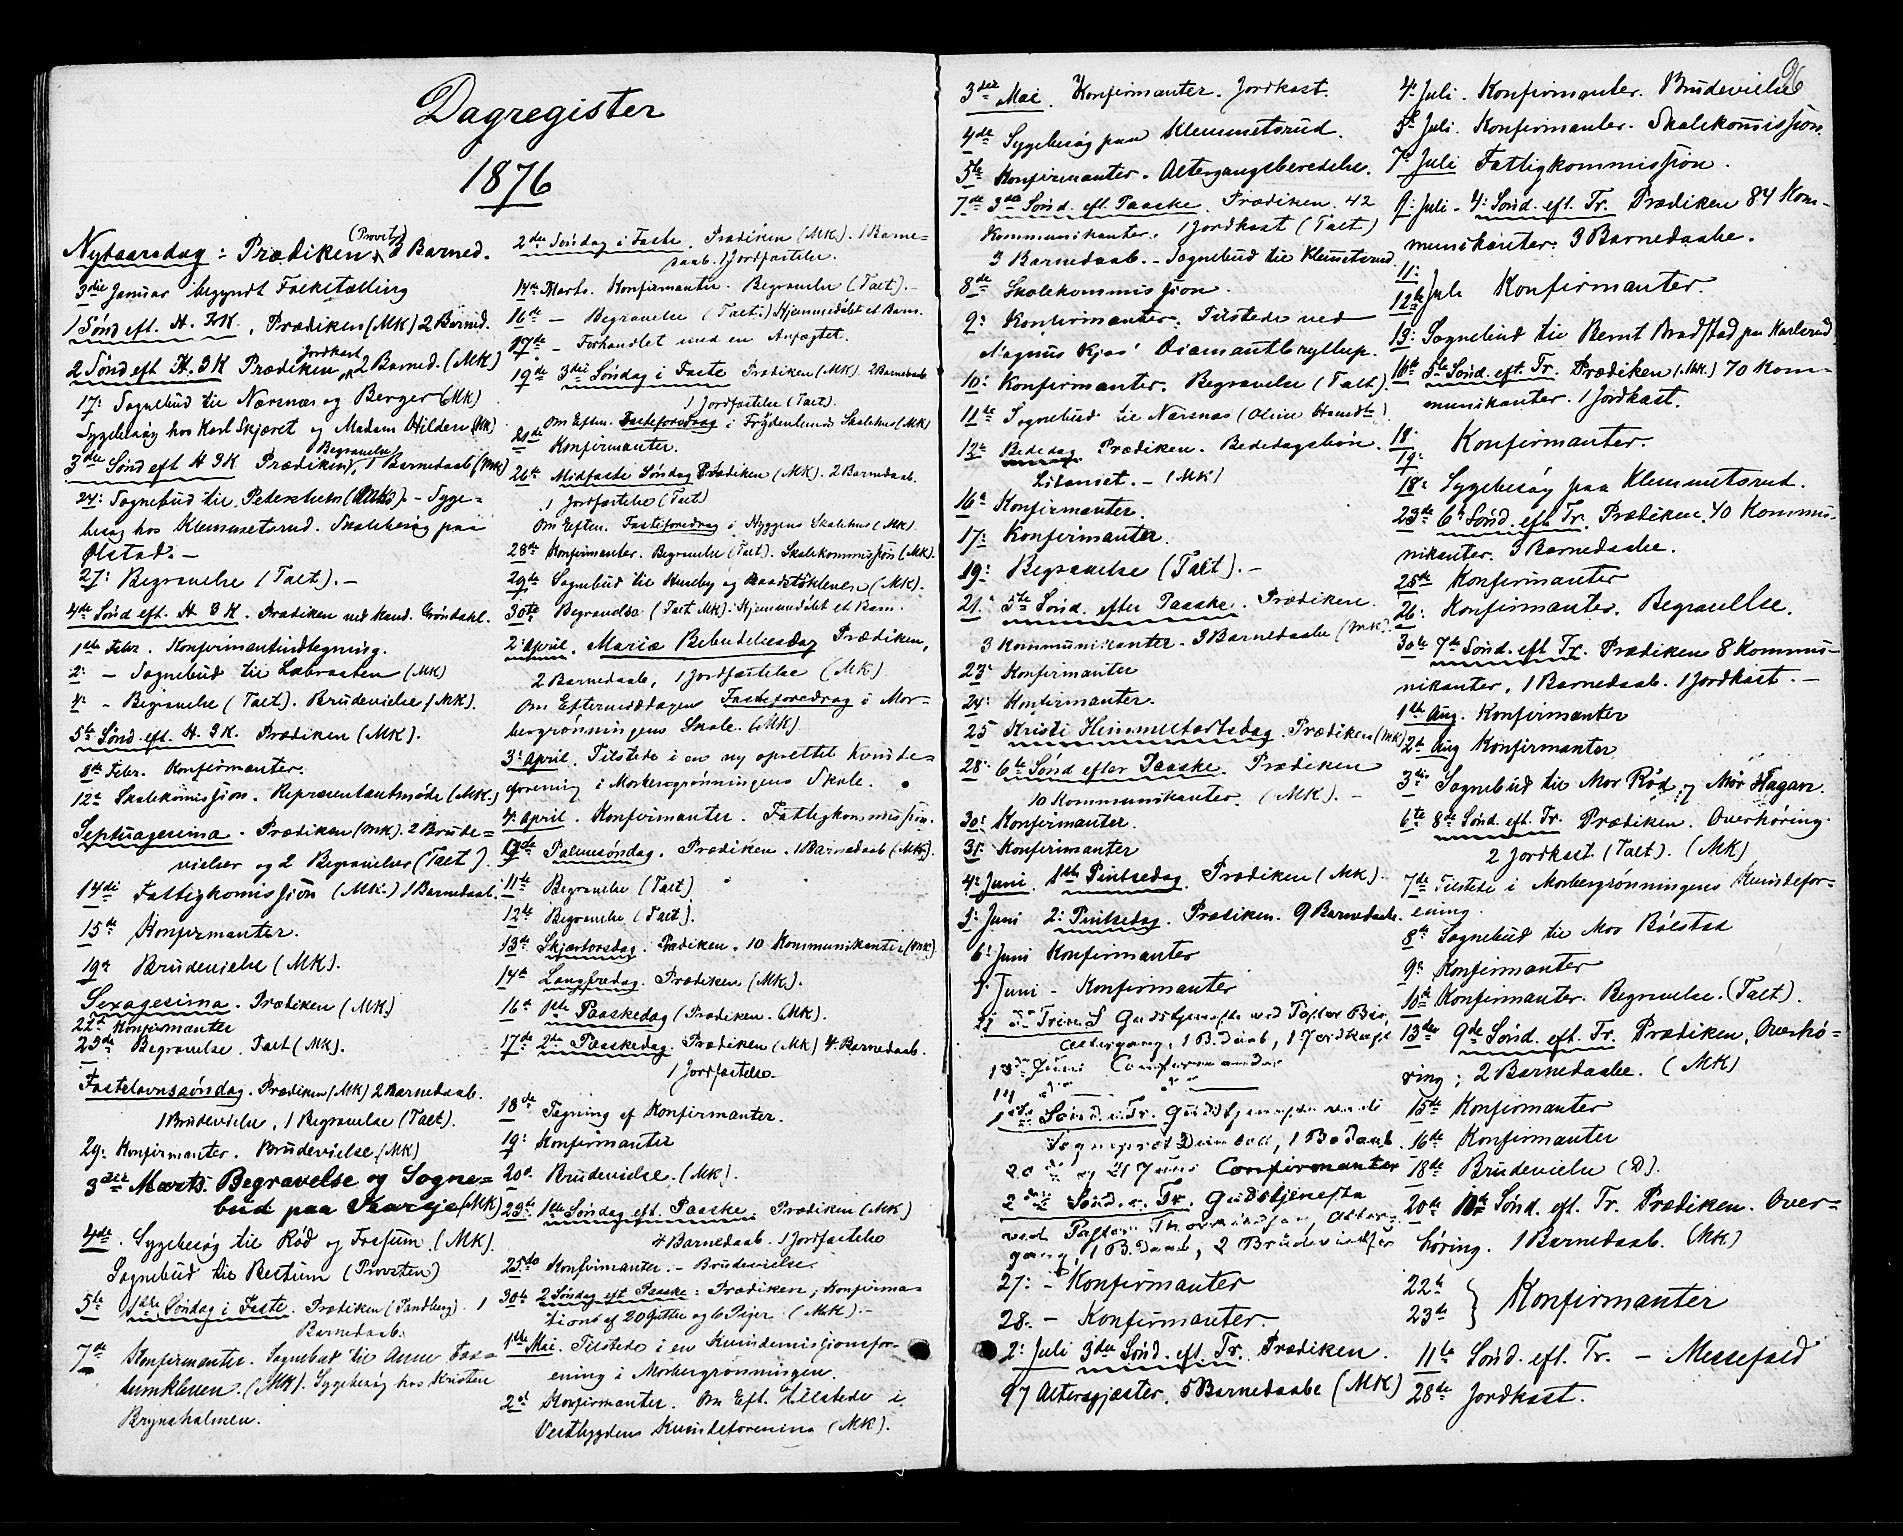 Dagregister
1876
Nytaarsdag: Prædiken (Provst) 3 Barned.
3die Januar begyndt Folketælling
1 Sønd eft. H. 3K, Prædiken (MK) 2 Barned.
2 Sønd eft H. 3K Prædiken Jordkast og 2 Barned. (MK)
17: Sognebud til Nærsnæs og Berger (MK)
Sygebesøg hos Karl Skjæret og Madam Hilden (MK)
3die Sønd eft H 3K Prædiken, Begravelse, 1 Barnedaab (MK)
24: Sognebud til - Syge-
besøg hos Klemmetsrud. Skolebesøg paa
Ølstad. -
27: Begravelse (Talt). -
4de Sønd eft. H. 3K. Prædiken ved Kand. Grøndahl.
1ste Febr. Konfirmantindtegning.
2: - Sognebud til Labraaten (MK)
4: - Begravelse (Talt). Brudevielse (MK).
5te Sønd. eft. H. 3K. Prædiken (MK).
8de Febr. Konfirmanter.
12te Skolekomissjon. Repræsentantmøde (MK.)
Septuagesima. Prædiken (MK). 2 Brude-
vielser og 2 Begravelser (Talt).
14de Fattigkomissjon (MK.) 1 Barnedaab.
15de Konfirmanter.
19de Brudevielse (MK).
Sexagesima. Prædiken (MK)
22de Konfirmanter
23de Begravelse. Talt (MK).
Fastelavnssøndag. Prædiken (MK) 2 Barnedaab.
1 Brudevielse, 1 Begravelse (Talt).
29: Konfirmanter. Brudevielse (MK)
3die Marts. Begravelse og Sogne-
bud paa (MK)
4de. Sygebesøg til Rød og Fossum. (MK).
Sognebud til Bettum (Provsten)
5te 1ste Søndag i Faste. Prædiken (Sandberg). 1
Barnedaab.
7de Konfirmanter. Sognebud til Anne Fos-
sumkleven. (MK). Sygebesøg hos Kristen
Brynsholmen.
2den Søndag i Faste. Prædiken (MK). 1 Barne-
daab. 1 Jordfæstelse.
14de Marts. Konfirmanter. Begravelse (Talt). -
16de - Begravelse (Talt.) Hjemmedøbt et Barn.
17de - Forhandlet med en Anfægtet.
19de 3die Søndag i Faste Prædiken (MK) 2 Barnedaab
1 Jordfæstelse (Talt).
Om Eften. Fasteforedrag i Frydenlunds Skolehus (MK)
21de Konfirmanter.
26de Midfaste Søndag Prædiken (MK). 2 Barnedaab.
1 Jordfæstelse (Talt)
Om Eften. Fasteforedrag i Hyggens Skolehus (MK).
28de Konfirmanter. Begravelse (Talt). Skolekommissjon (MK).
29de Sognebud til Huseby og (MK).
30te Begravelse (Talt MK). Hjemmedøbt et Barn.
2: April. Mariæ Bebudelsesdag Prædiken,
2 Barnedaab, 1 Jordfæstelse (MK).
Om Eftermiddagen Fasteforedrag i Mor-
bergrønningens Skole. (MK).
3: April. Tilstede i en ny oprettet Kvinde-
forening i Morbergrønningens Skole.
4: April. Konfirmanter. Fattigkommissjon.
9de Palmesøndag. Prædiken. 1 Barnedaab (MK).
11te Begravelse (Talt)
12te Begravelse (Talt).
13de Skjærtorsdag. Prædiken. 10 Kommunikanter (MK)
14de Langfredag. Prædiken (MK).
16de 1ste Paaskedag (Prædiken. (MK).
17de 2den Paaskedag. Prædiken (MK) 4 Barnedaab.
1 Jordfæstelse
18de Tegning af Konfirmanter.
19: Konfirmanter
20de Brudevielse. (MK).
23de 1ste Søndag eft. Paaske. Prædiken (MK)
4 Barnedaab. 1 Jordfæstelse
25de Konfirmanter. - Brudevielse.
30te 2 Søndag eft Paaske: Prædiken, Konfirma-
tion af 20 Gutter og 6 Piger. (MK). -
1ste Mai. Tilstede i en Kvindemissjonsfor-
ening i Morbergrønningen.
2de Konfirmanter. Om Eft. tilstede i
Vestbygdens Kvindeforening (MK).
96
3die Mai. Konfirmanter. Jordkast.
4de Sygebesøg paa Klemmetsrud.
5te Konfirmanter. Altergangsberedelse.
7de 3die Sønd. eft. Paaske. Prædiken. 42
Kommunikanter. 1 Jordkast (Talt)
3 Barnedaab. - Sognebud til Klemetsrud
8de Skolekommissjon.
9: Konfirmanter. Tilstede ved
Magnus Kjos' Diamantbryllup.
10: Konfirmanter. Begravelse (Talt).
11te Sognebud til Nærsnæs
12te Bededag. Prædiken. Bededagsbøn.
Litaniet. - (MK)
16de Konfirmanter.
17: Konfirmanter.
19: Begravelse (Talt). -
21: 5te Sønd. efter Paaske. Prædiken.
3 Kommunikanter. 3 Barnedaabe (MK).
23: Konfirmanter
24: Konfirmanter.
25 Kristi Himmelfartsdag. Prædiken (MK)
28: 6te Sønd efter Paaske. Prædiken
10 Kommunikanter. (MK). -
30: Konfirmanter.
31: Konfirmanter
4: Juni. 1ste Pintsedag. Prædiken (MK).
5: Juni 2: Pintsedag. Prædiken. 9 Barnedaabe.
6: Juni Konfirmanter
7: Juni - Konfirmanter
11 Trinit. Gudstjeneste ved Pastor
Altergang, 1 B.Daab, 1 Jordkast
13de Juni Confirmander
14 do do
1ste Sønd. e. Tr. Gudstjeneste ved
Sogneprest 1 B.Daab
20de og 21 Juni Confirmanter
2den Sønd. e. Tr. Gudstjeneste
ved Pastor Alter-
gang, 1 B.Daab, 2 Brudevielser
27: - Konfirmanter
28. - Konfirmanter. -
2: Juli 3die Sønd. eft. Tr. Prædiken.
97 Altersgjæster. 5 Barnedaabe (MK)
4: Juli. Konfirmanter. Brudevielse
5te Juli. Konfirmanter. Skolekomissjon.
7de Juli Fattigkommissjon.
9: Juli - 4: Sønd. eft. Tr. Prædiken 84 Kom-
munikanter. 3 Barnedaabe.
11:
12te Juli Konfirmanter.
13: Sognebud til Bernt Bradstad paa Karlsrud
16de 5te Sønd. eft. Tr. Prædiken (MK) 70 Kom-
munikanter. 1 Jordkast.
18
19: Konfirmanter.
18: Sygebesøg paa Klemmetsrud.
23de 6te Sønd. eft Tr. Prædiken. 40 Kommu-
nikanter. 3 Barnedaabe.
25de Konfirmanter
26: Konfirmanter. Begravelse.
30te 7de Sønd. eft Tr. Prædiken 8 Kommu-
nikanter, 1 Barnedaab. 1 Jordkast. -
1ste Aug. Konfirmanter
2de Aug Konfirmanter
3die Sognebud til Mor Rød og Mor Hagen.
6te 8de Sønd. eft. Tr. Prædiken. Overhøring.
2 Jordkast. (Talt). (MK)
7de Tilstede i Morbergrønningens Kvindefor-
ening.
8de Sognebud til Mor Bølstad
9: Konfirmanter
10de Konfirmanter. Begravelse. (Talt).
13de 9de Sønd. eft. Tr. Prædiken, Overhø-
ring; 2 Barnedaabe. (MK)
15de Konfirmanter
16de Konfirmanter
18de Brudevielse (D).
20de 10de Sønd. eft. Tr. Prædiken. Over-
høring. 1 Barnedaab. (MK)
22de
23de } Konfirmanter
11te Sønd. eft. Tr. - Messefald
28de Jordkast.